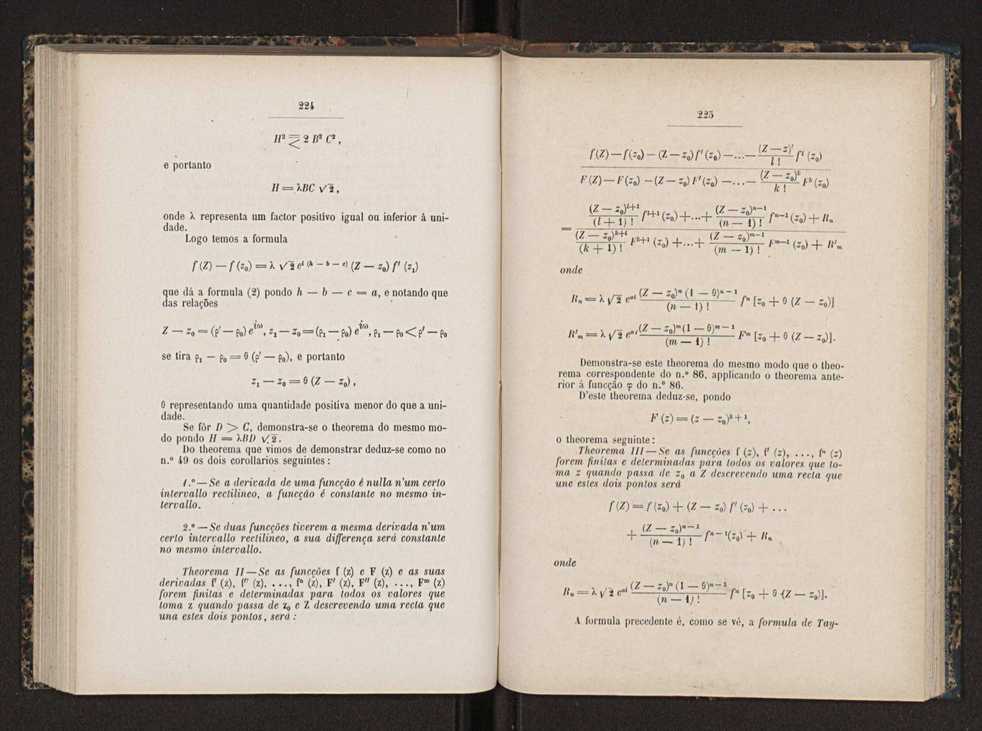 224
H² ⋜ 2 B² C²,
e portanto
H = λBC √2,
onde λ representa um factor positivo igual ou inferior á uni-
dade.
Logo temos a formula
f (Z) — f (z₀) = λ √2 e^{i (h — b — c)} (Z — z₀) f' (z₁)
que dá a formula (2) pondo h — b — c = a, e notando que
das relações
Z — z₀ = (ρ' — ρ₀) e^{iω}, z₁ — z₀ = (ρ₁ — ρ₀) e^{iω}, ρ₁ — ρ₀ < ρ' — ρ₀
se tira ρ₁ — ρ₀ = θ (ρ' — ρ₀), e portanto
z₁ — z₀ = θ (Z — z₀),
θ representando uma quantidade positiva menor do que a uni-
dade.
Se fôr D > C, demonstra-se o theorema do mesmo mo-
do pondo H = λBD √2.
Do theorema que vimos de demonstrar deduz-se como no
n.º 49 os dois corollarios seguintes:
1.º — Se a derivada de uma funcção é nulla n'um certo
intervallo rectilineo, a funcção é constante no mesmo in-
tervallo.
2.º — Se duas funcções tiverem a mesma derivada n'um
certo intervallo rectilineo, a sua differença será constante
no mesmo intervallo.
Theorema II — Se as funcções f (z) e F (z) e as suas
derivadas f' (z), f'' (z), ..., fⁿ (z), F' (z), F'' (z), ..., Fᵐ (z)
forem finitas e determinadas para todos os valores que
toma z quando passa de z₀ e Z descrevendo uma recta que
una estes dois pontos, será:
225
f(Z) — f(z₀) — (Z — z₀) f' (z₀) — ... — (Z — z)^l / l! f^l (z₀)
F(Z) — F(z₀) — (Z — z₀) F' (z₀) — ... — (Z — z₀)^k / k! F^k (z₀)
= (Z — z₀)^{l+1} / (l + 1)! f^{l+1} (z₀) + ... + (Z — z₀)^{n—1} / (n — 1)! f^{n—1} (z₀) + Rₙ
(Z — z₀)^{k+1} / (k + 1)! F^{k+1} (z₀) + ... + (Z — z₀)^{m—1} / (m — 1)! F^{m—1} (z₀) + R'ₘ
onde
Rₙ = λ √2 e^{ai} (Z — z₀)ⁿ (1 — θ)^{n—1} / (n — 1)! fⁿ [z₀ + θ (Z — z₀)]
R'ₘ = λ √2 e^{ai} (Z — z₀)ᵐ (1 — θ)^{m—1} / (m — 1)! Fᵐ [z₀ + θ (Z — z₀)].
Demonstra-se este theorema do mesmo modo que o theo-
rema correspondente do n.º 86, applicando o theorema ante-
rior á funcção φ do n.º 86.
D'este theorema deduz-se, pondo
F (z) = (z — z₀)^{k+1},
o theorema seguinte:
Theorema III — Se as funcções f (z), f' (z), ..., fⁿ (z)
forem finitas e determinadas para todos os valores que to-
ma z quando passa de z₀ a Z descrevendo uma recta que
une estes dois pontos será
f (Z) = f (z₀) + (Z — z₀) f' (z₀) + ...
+ (Z — z₀)^{n—1} / (n — 1)! f^{n—1} (z₀) + Rₙ
onde
Rₙ = λ √2 e^{ai} (Z — z₀)ⁿ (1 — θ)^{n—1} / (n — 1)! fⁿ [z₀ + θ (Z — z₀)].
A formula precedente é, como se vê, a formula de Tay-